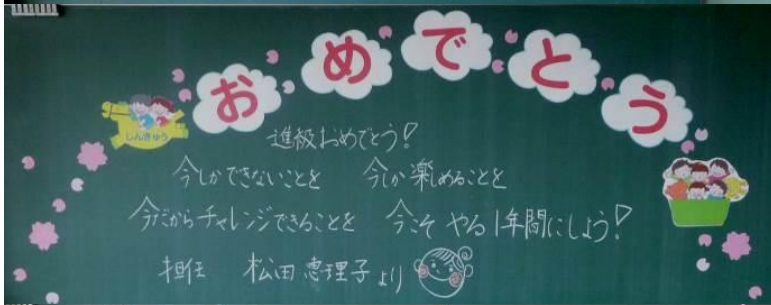 おめでとう
しんきゅう
進級おめでとう!
今しかできないことを 今しか楽しめることを
今だからチャレンジできることを 今こそ やる1年間にしよう!
担任 松田恵理子より